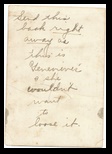 Send this
back right
away as
this is
Genevieve's
& she
wouldn't
want
to
loose it.